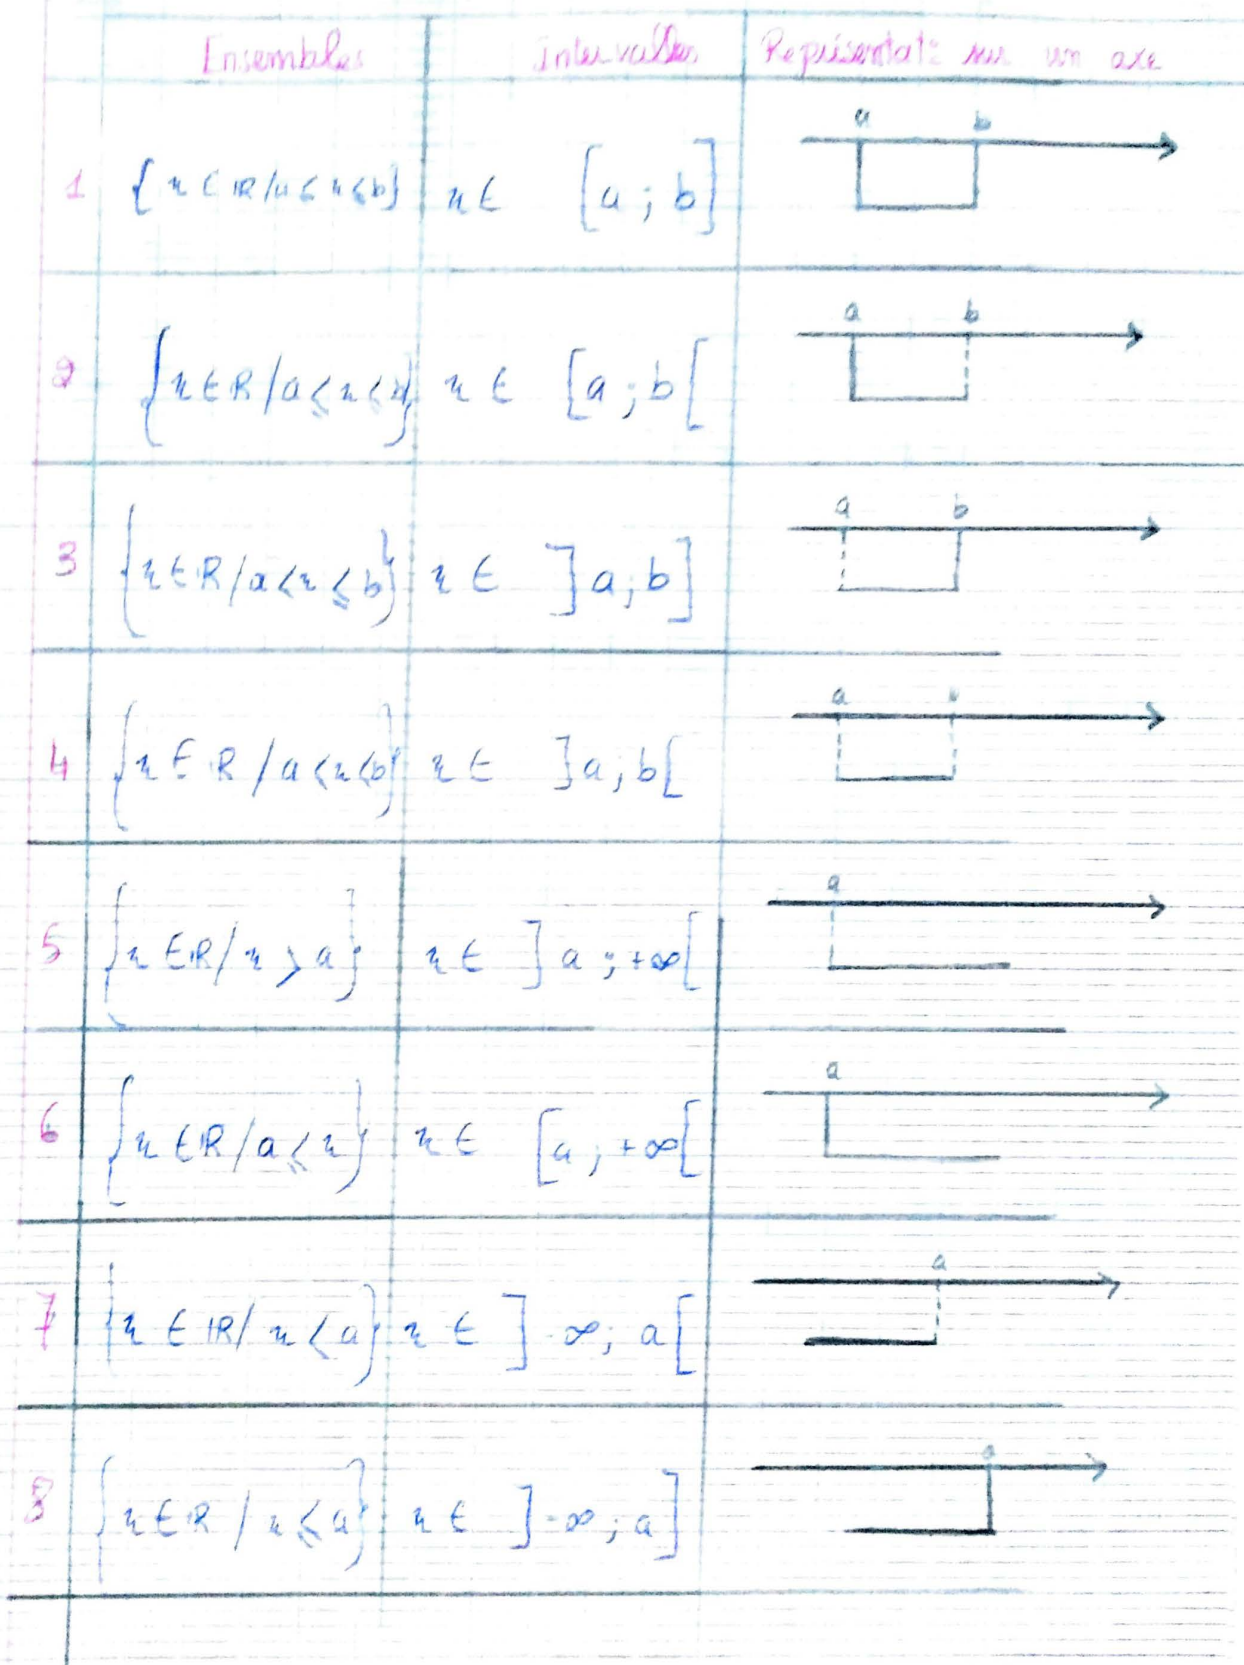 Ensembles Intervalles Représentat° sur un axe
a b
1 {x ∈ ℝ/a ⩽ x ⩽ b} x ∈ [a ; b]
a b
2 {x ∈ ℝ/a ⩽ x < b} x ∈ [a ; b[
a b
3 {x ∈ ℝ/a < x ⩽ b} x ∈ ]a ; b]
a
4 {x ∈ ℝ/a < x < b} x ∈ ]a ; b[
a
5 {x ∈ ℝ/x > a} x ∈ ]a ; +∞[
a
6 {x ∈ ℝ/a ⩽ x} x ∈ [a ; +∞[
a
7 {x ∈ ℝ/x < a} x ∈ ]-∞ ; a[
a
8 {x ∈ ℝ/x ⩽ a} x ∈ ]-∞ ; a]